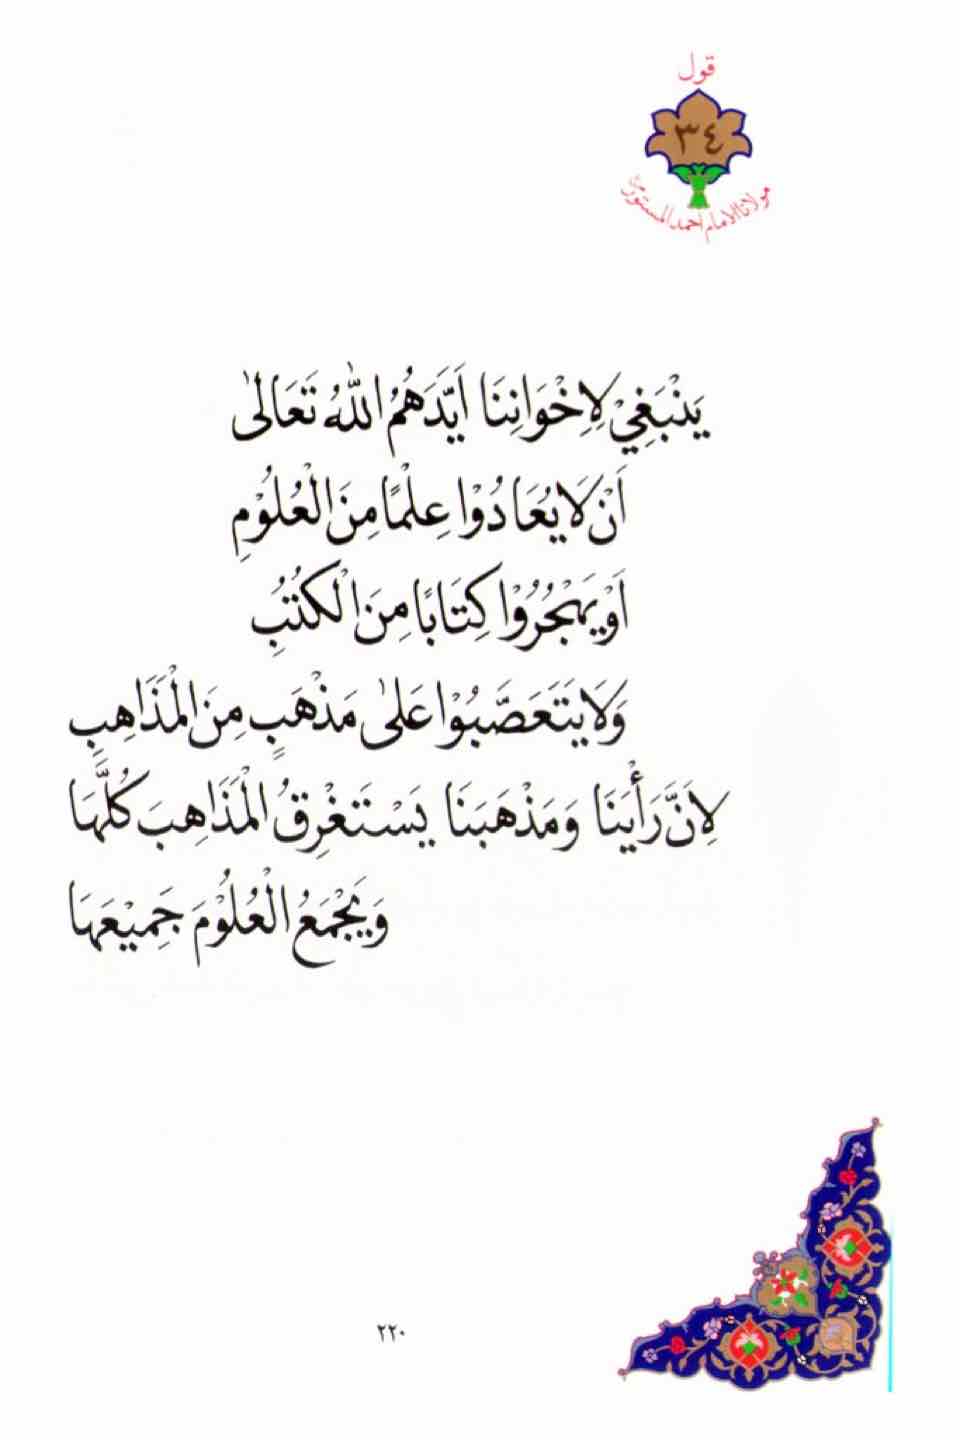 قول
٣٤
مولانا الامام احمد المستور
يَنْبَغِيْ لِاِخْوَانِنَا اَيَّدَهُمُ اللّٰهُ تَعَالىٰ
اَنْ لَا يُعَادُوْا عِلْمًا مِنَ الْعُلُوْمِ
اَوْ يَهْجُرُوْا كِتَابًا مِنَ الْكُتُبِ
وَلَا يَتَعَصَّبُوْا عَلىٰ مَذْهَبٍ مِنَ الْمَذَاهِبِ
لِاَنَّ رَأْيَنَا وَمَذْهَبَنَا يَسْتَغْرِقُ الْمَذَاهِبَ كُلَّهَا
وَيَجْمَعُ الْعُلُوْمَ جَمِيْعَهَا
٢٢٠